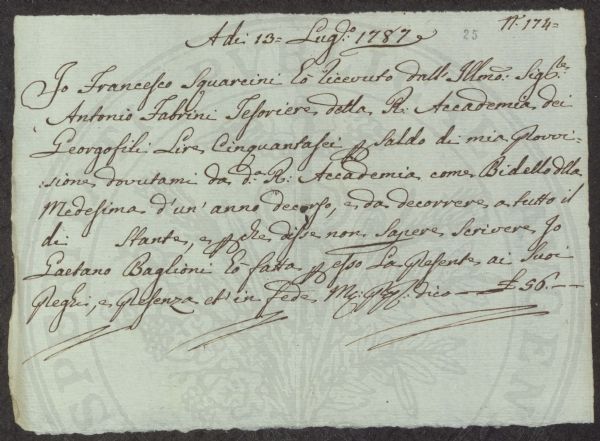 N.º 174=
25
A di 13= Lug.º 1787
Io Francesco Squarcini hò ricevuto dall' Illmo: Sig.re
Antonio Fabrini Tesoriere della R: Accademia dei
Georgofili Lire Cinquantasei p saldo di mia Provvi=
=sione dovutami da d.a R: Accademia come Bidello della
Medesima d'un' anno decorso, e da decorrere a tutto il
di Stante, e p che disse non Sapere scrivere Io
Gaetano Baglioni hò fatta p esso La Presente ai Suoi
Preghi, e Presenza et' in fede M: pp: dico — £ 56. —